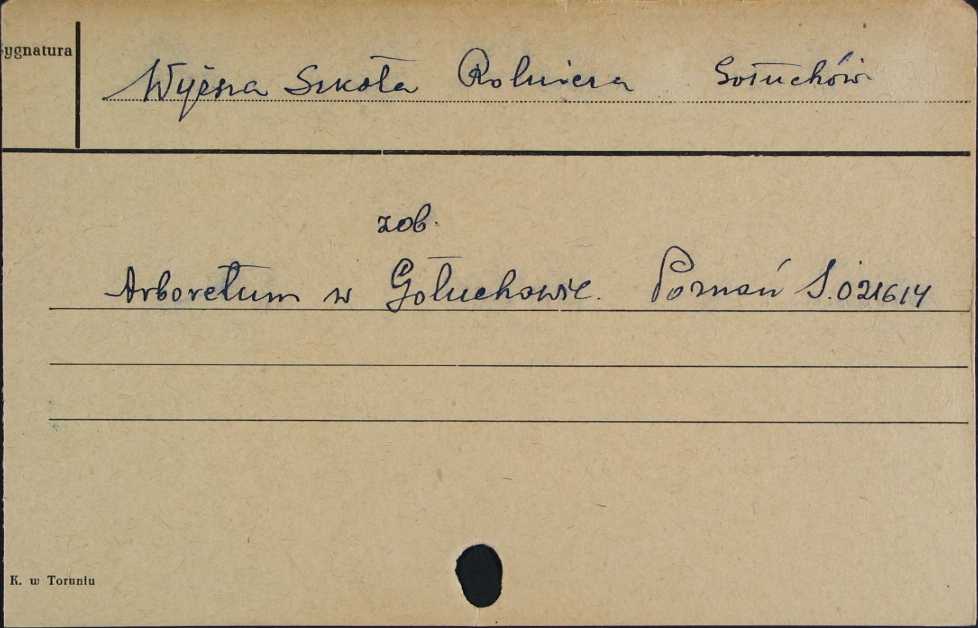 ygnatura
Wyższa Szkoła Rolnicza Gołuchów
zob.
Arboretum w Gołuchowie. Poznań S.021614
K. w Toruniu